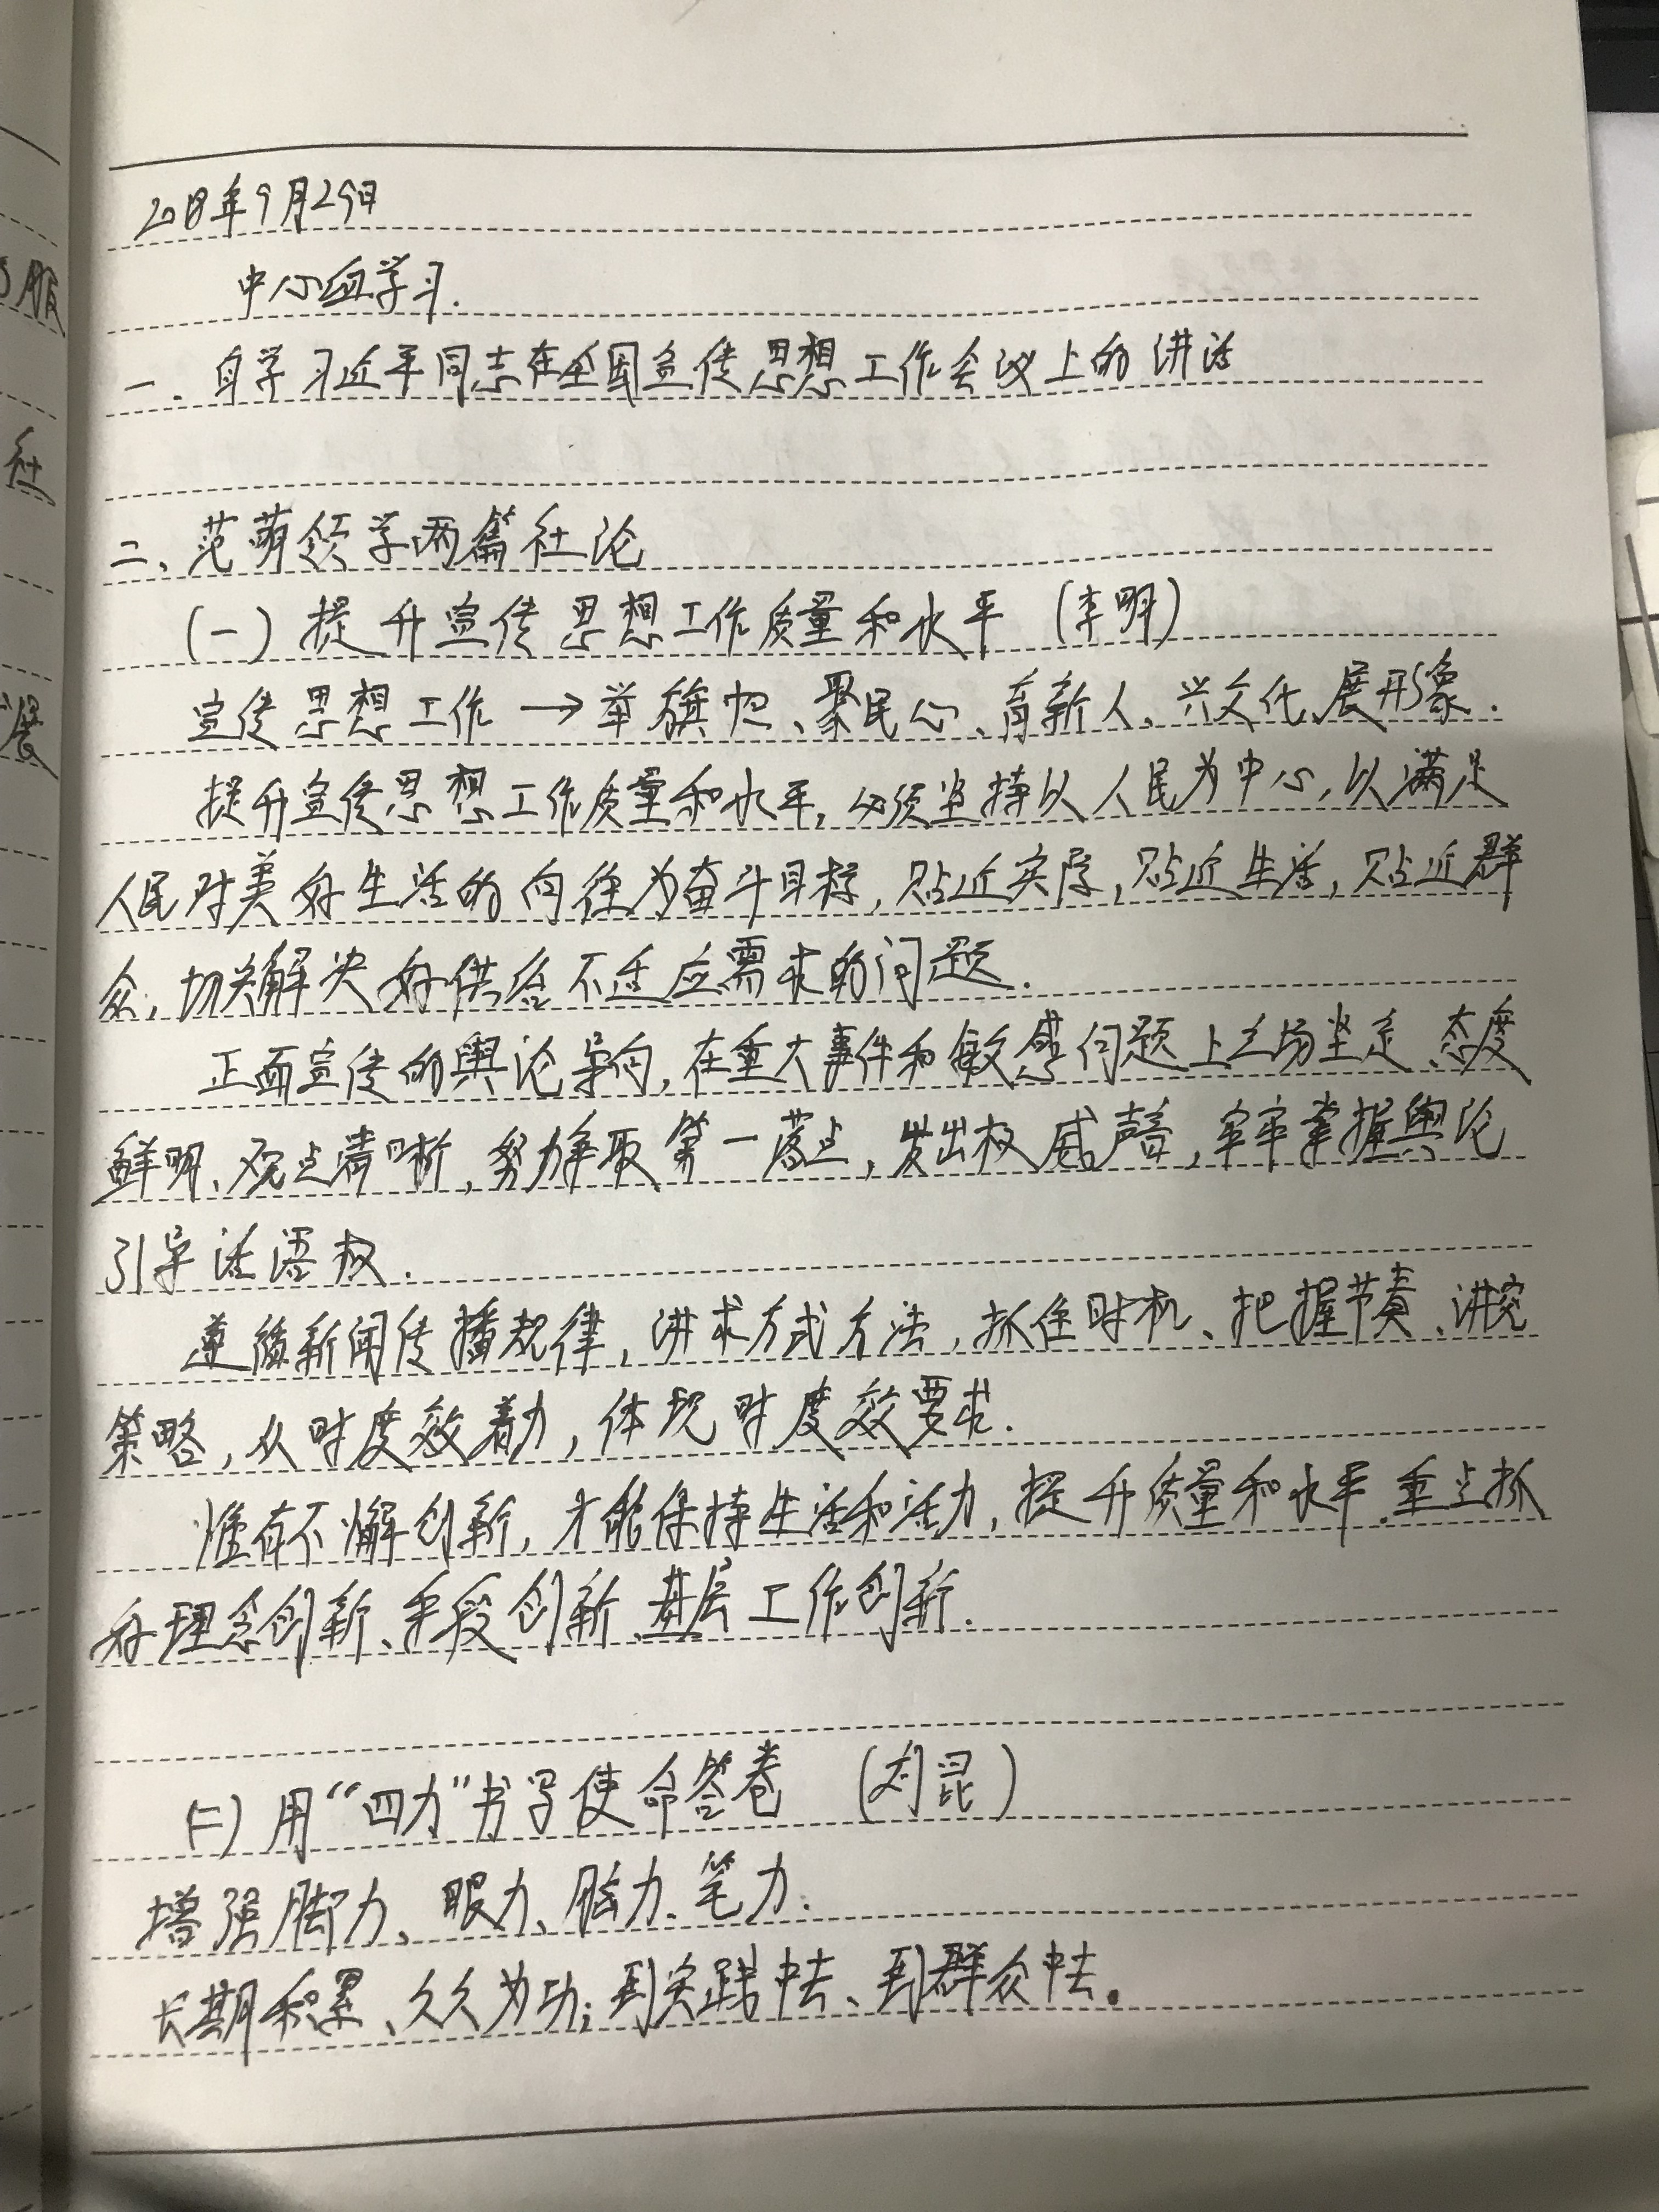 2018年9月29日
中心组学习.
一、自学习近平同志在全国宣传思想工作会议上的讲话
二、范萌领学两篇社论
(一)提升宣传思想工作质量和水平 (李明)
宣传思想工作→举旗帜、聚民心、育新人、兴文化、展形象.
提升宣传思想工作质量和水平,必须坚持以人民为中心,以满足
人民对美好生活的向往为奋斗目标,贴近实际,贴近生活,贴近群
众,切关解决好供给不适应需求的问题.
正面宣传的舆论导向,在重大事件和敏感问题上立场坚定、态度
鲜明、观点清晰,努力争取第一落点,发出权威声音,牢牢掌握舆论
引导话语权.
遵循新闻传播规律,讲求方式方法,抓住时机、把握节奏、讲究
策略,从时度效着力,体现时度效要求.
惟有不懈创新,才能保持生活和活力,提升质量和水平.重点抓
好理念创新、手段创新、基层工作创新.
(二)用“四力”书写使命答卷 (刘昆)
增强脚力、眼力、脑力、笔力.
长期积累、久久为功;到实践中去、到群众中去。
服
社
展